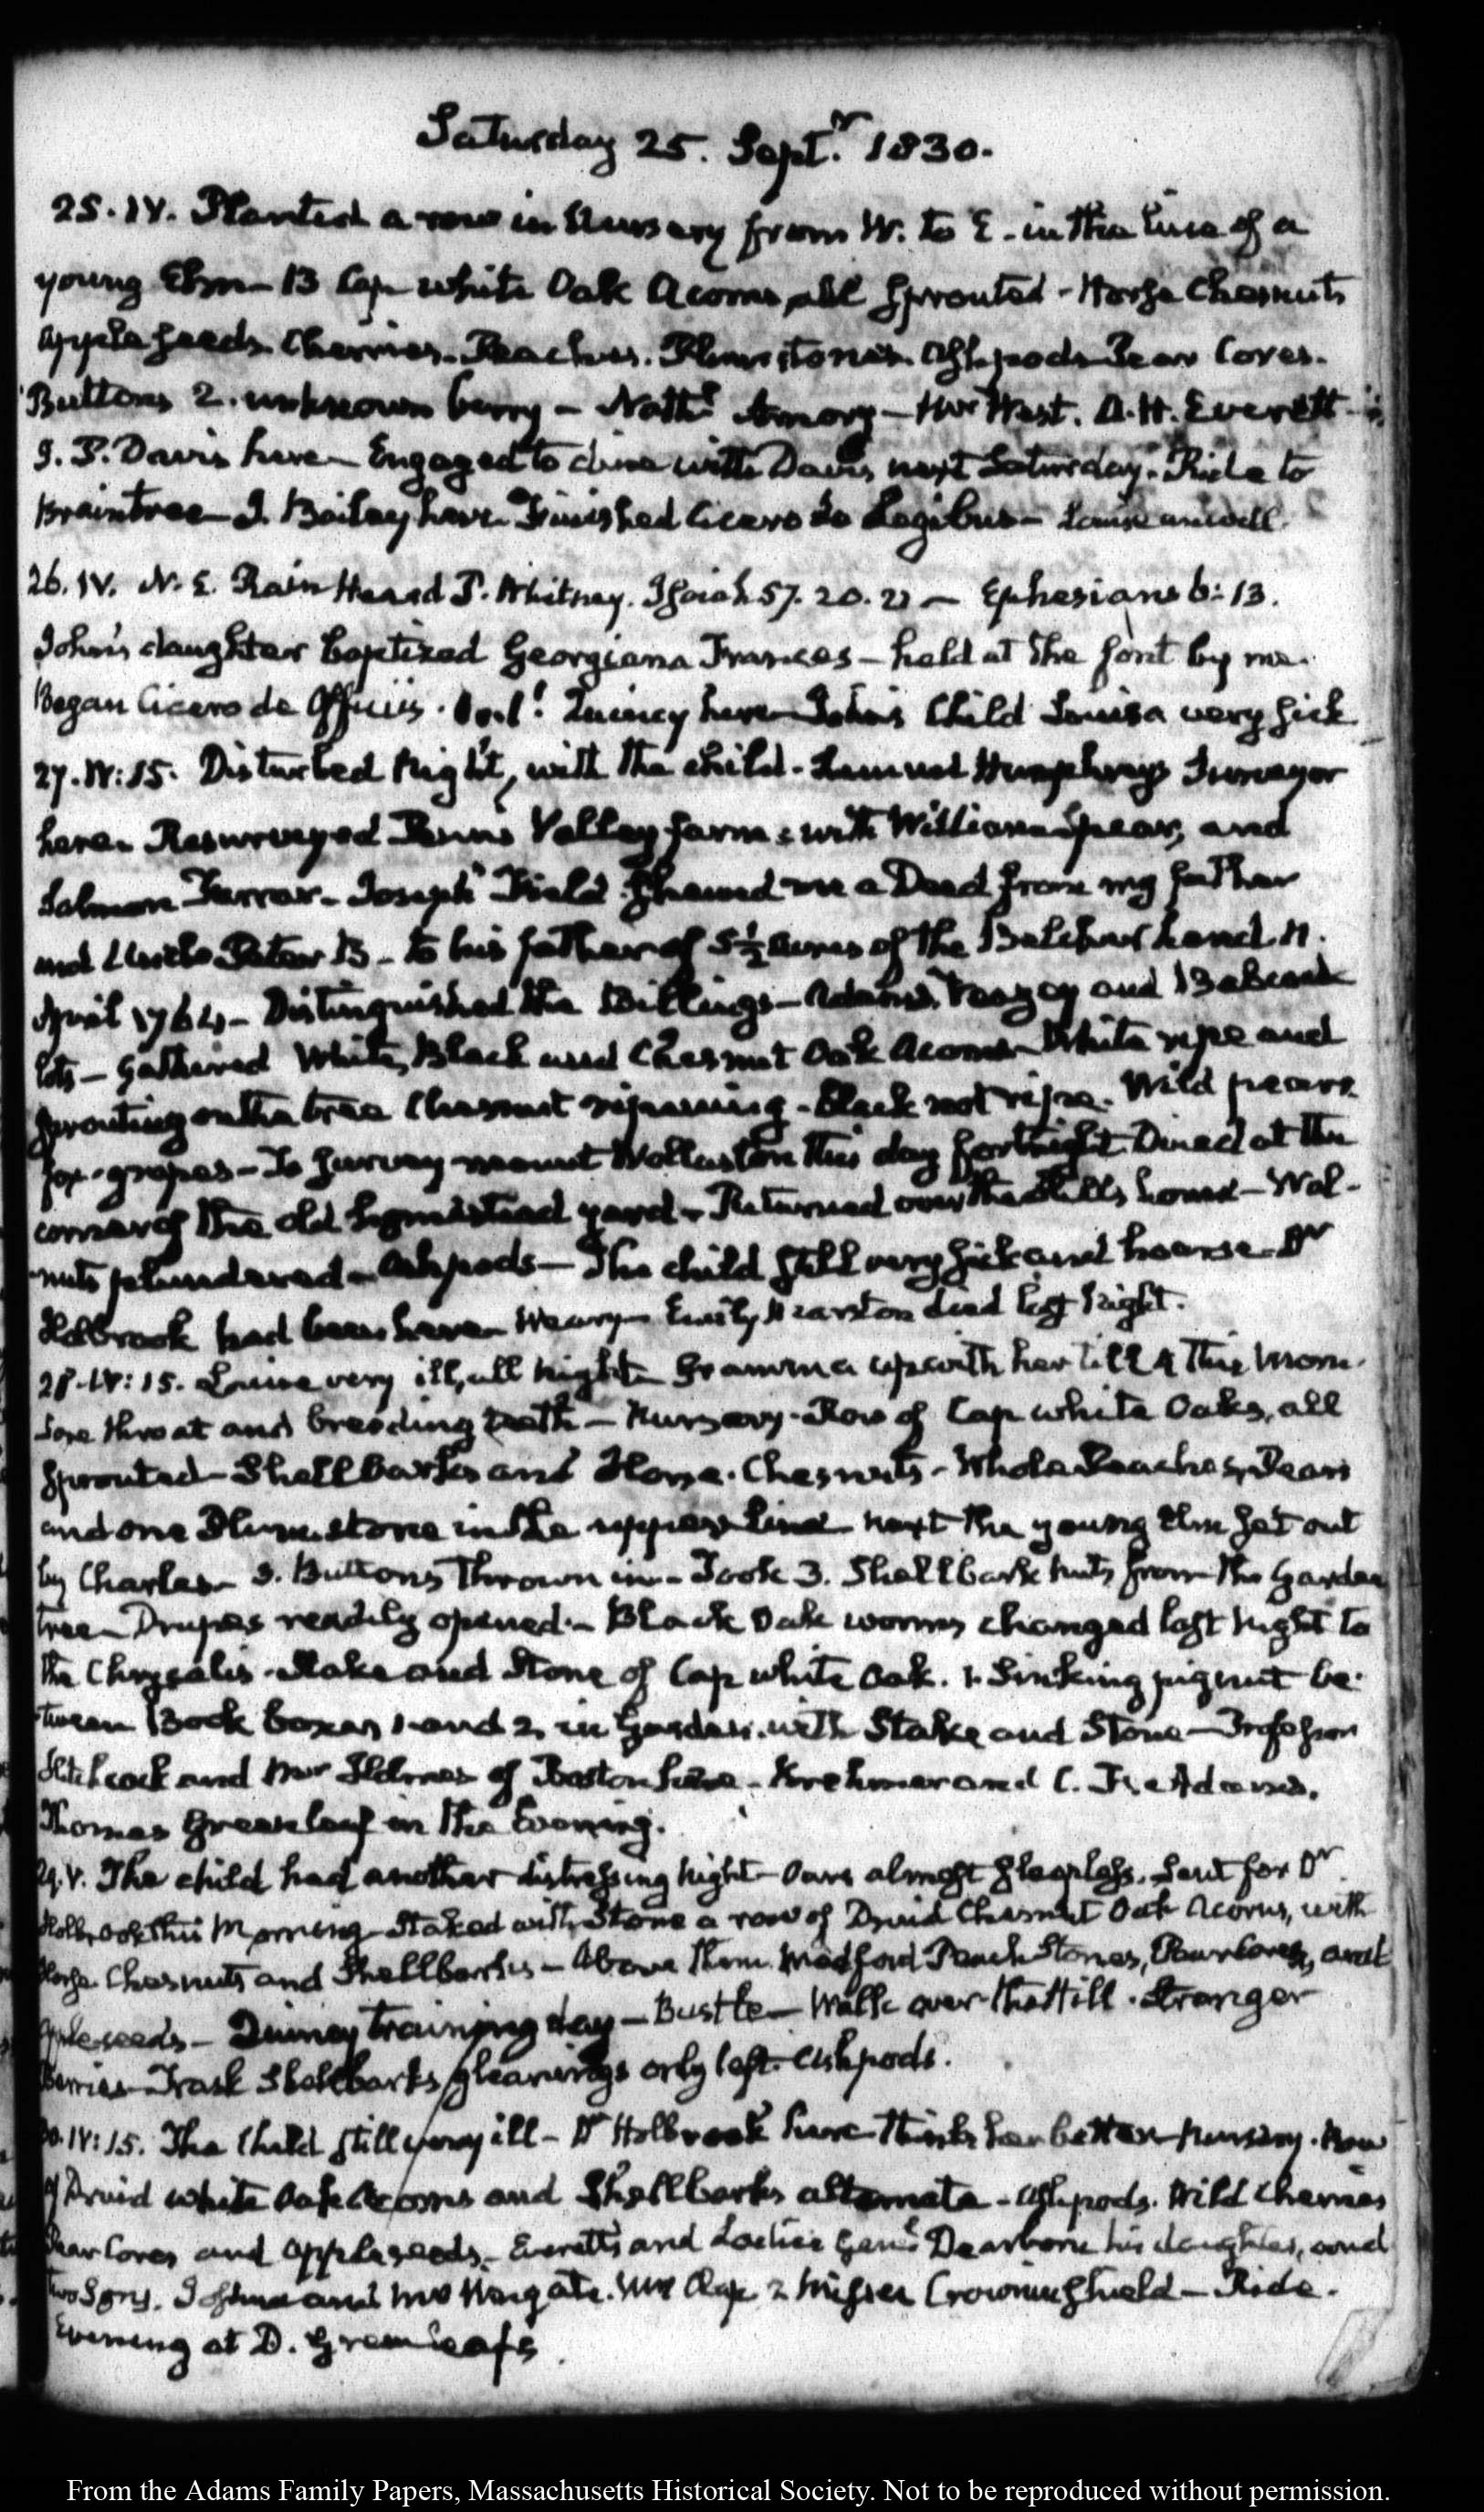 Saturday 25. Septr. 1830.
25. IV. Planted a row in Nursery from W. to E. in the line of a
young Elm — 13 Cap white Oak Acorns, all sprouted — Horse Chesnuts
Apple seeds. Cherries. Peaches. Plumstones. Ashpods Pear Cores.
Buttons 2. unknown berry — Nathl. Amory — Mr West. A. H. Everett
J. P. Davis here — Engaged to dine with Davis next Saturday. Ride to
Braintree — J. Bailey here. Finished Cicero de Legibus — Louisa unwell.
26. IV. N. E. Rain Heard P. Whitney. Isaiah 57. 20. 21 — Ephesians 6: 13.
John's daughter baptized Georgiana Frances — held at the font by me.
Began Cicero de Officiis. Quincy here — John's Child Louisa very sick
27. IV: 15. Disturbed Night, with the child. Lemuel Humphreys Surveyor
here. Resurveyed Penns Valley farm; with William Spear, and
Salmon Farrar — Joseph Field shewed me a Deed from my father
and Uncle Peter B — to his father of 5½ Acres of the Belcher land. 11.
April 1764 — Distinguished the Billings — Adams, Veazey and Babcock
lots — Gathered White, Black and Chesnut Oak Acorns — White ripe and
sprouting on the tree Chesnut ripening — Black not ripe. Wild pears.
fox-grapes — To survey mount Wollaston this day fortnight Dined at the
corner of the old homestead yard — Returned over the Hills home — Wal-
nuts plundered — Ashpods — The child still very sick and hoarse — Dr
Holbrook had been here — Weary — Emily Marston died last Night.
28. IV: 15. Louisa very ill, all night — Gramma up with her till 4 this Morn.
Sore throat and breeding teeth — Nursery. Row of Cap white Oaks, all
sprouted — Shellbarks and Horse-Chesnuts — Whole Peaches, Pears
and one Plumstone in the upper line next the young Elm set out
by Charles — 3. Buttons thrown in — Took 3. Shellbark nuts from the Garden
tree — Drupes readily opened — Black Oak worms changed last Night to
the Chrysalis. Stake and Stone of Cap white Oak. 1. Sinking pignut be-
tween Book boxes 1 and 2, in Garden, with Stake and Stone — Professor
Hitchcock and Mr Holmes of Boston here — Krehmer and C. F. Adams.
Thomas Greenleaf in the Evening.
29. V. The child had another distressing Night — Ours almost sleepless. Sent for Dr
Holbrook this Morning — Staked with Stone a row of Druid Chesnut Oak Acorns, with
Horse Chesnuts and Shellbarks — Above them Medford Peach Stones, Pear Cores, and
Apple seeds — Quincy training day — Bustle — Walk over the Hill. Stranger
Berries — Trask Shellbarks, gleanings only left. Ashpods.
30. IV: 15. The Child still very ill — Dr Holbrook here thinks her better — Nursery. Row
of Druid white Oak Acorns and Shellbarks alternate — Ashpods. Wild cherries
Pear Cores and Apple seeds — Everetts and Ladies Genl. Dearborn his daughter, and
two Sons. Joshua and Mrs Wingate. Mr Clap 2 Misses Crowninshield — Ride.
Evening at D. Greenleafs.
From the Adams Family Papers, Massachusetts Historical Society. Not to be reproduced without permission.